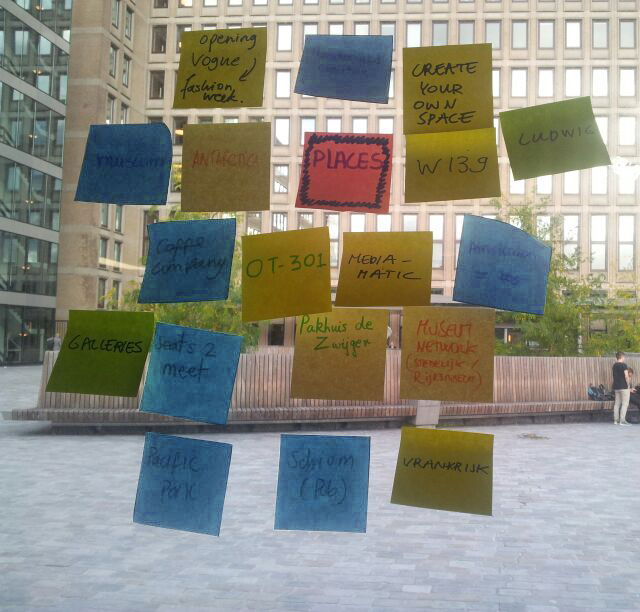 opening
Vogue
fashion
week.
CREATE
YOUR
OWN
SPACE
LUDWIG
museum
ANTARCTICA
PLACES
W139
Coffee
company
OT-301
MEDIA-
MATIC
GALLERIES
Seats 2
meet
Pakhuis de
Zwijger
MUSEUM
NETWORK
(STEDELIJK /
Rijksmuseum)
Pacific
Park
(Pub)
VRANKRIJK